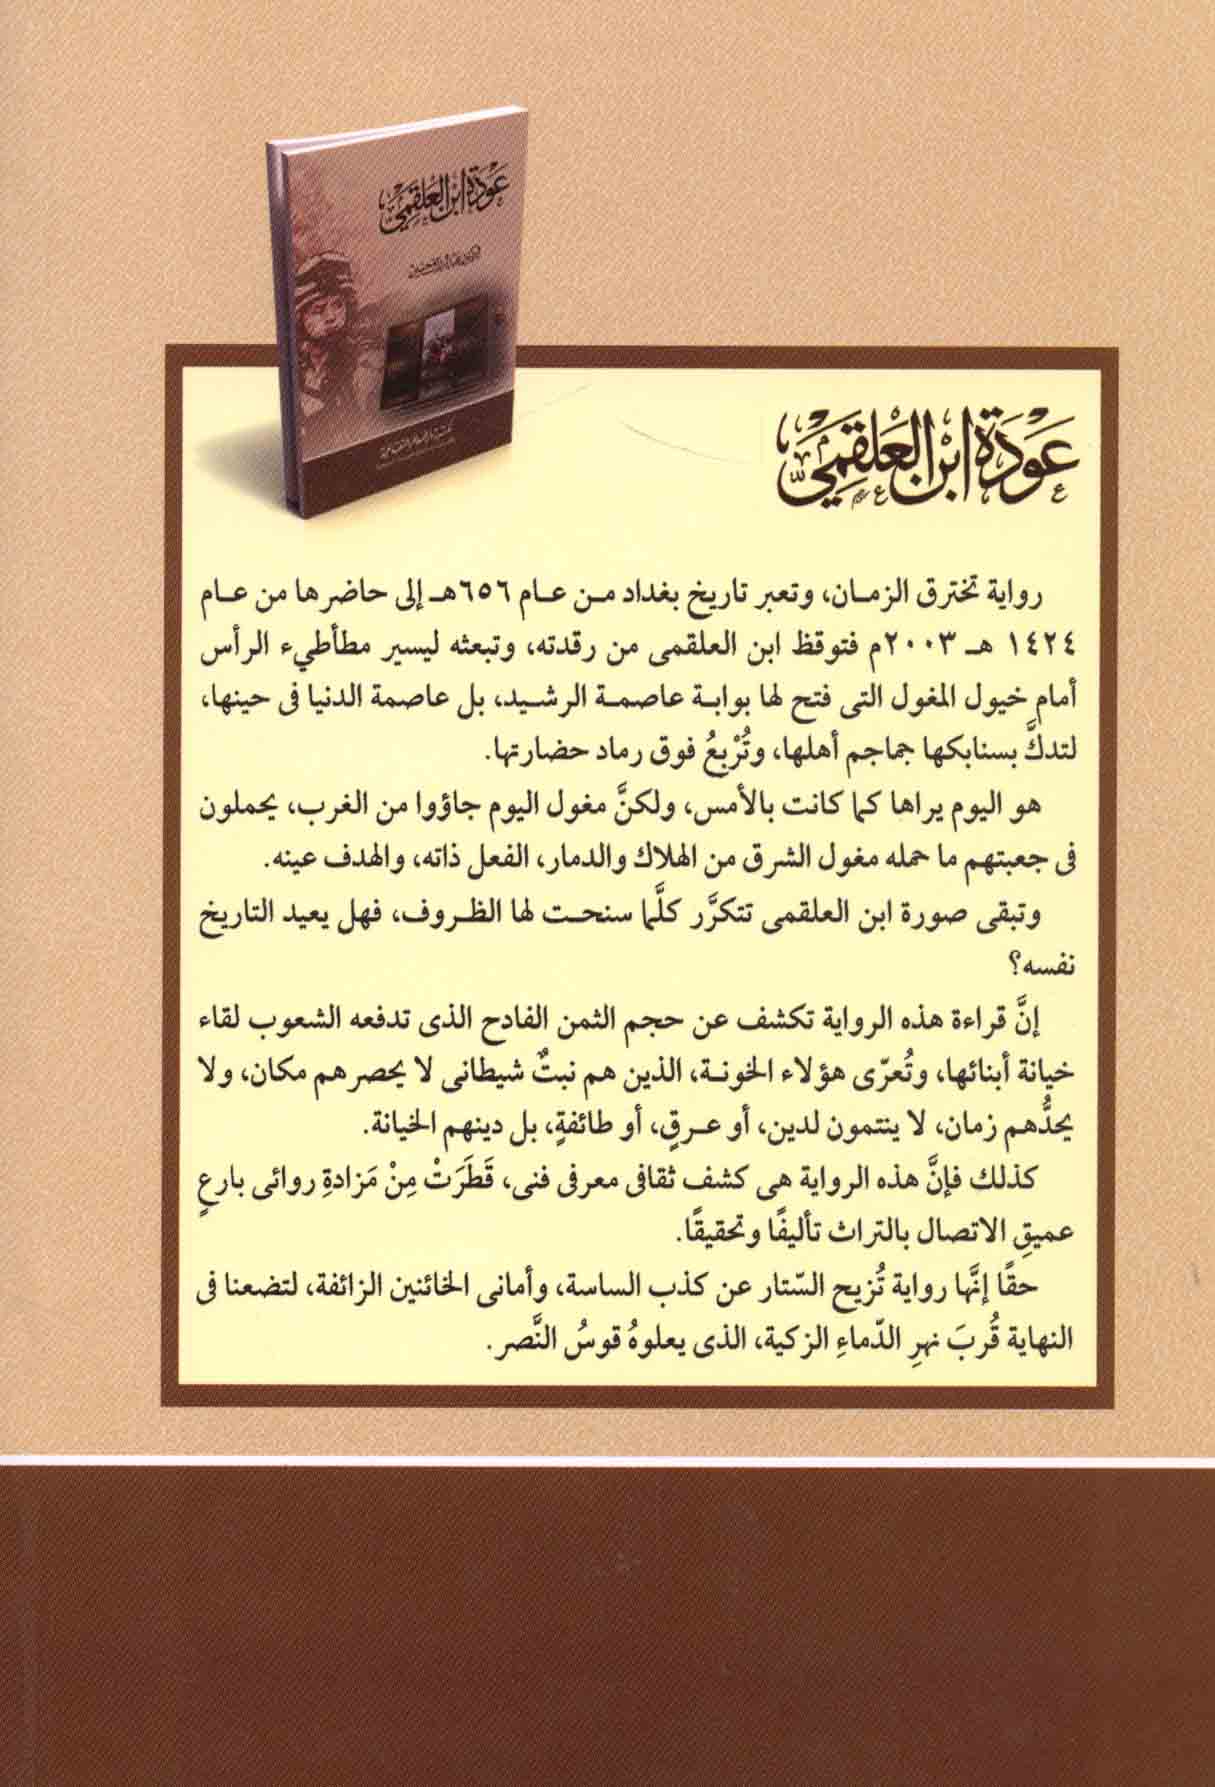 عودة ابن العلقمي
عودة ابن العلقمي
رواية تخترق الزمـان، وتعبر تاريخ بغداد مـن عـام ٦٥٦هـ إلى حاضرها من عـام
١٤٢٤ هـ ٢٠٠٣م فتوقظ ابن العلقمى من رقدته، وتبعثه ليسير مطأطيء الرأس
أمام خيول المغول التى فتح لها بوابـة عاصمـة الرشـيد، بل عاصمة الدنيا فى حينها،
لتدكَّ بسنابكها جماجم أهلها، وتُرْبعُ فوق رماد حضارتها.
هو اليوم يراها كما كانت بالأمس، ولكنَّ مغول اليوم جاؤوا من الغرب، يحملون
فى جعبتهم ما حمله مغول الشرق من الهلاك والدمار، الفعل ذاته، والهدف عينه.
وتبقى صورة ابن العلقمى تتكرَّر كلَّما سنحـت لها الظـروف، فهل يعيد التاريخ
نفسه؟
إنَّ قراءة هذه الرواية تكشف عن حجم الثمن الفادح الذى تدفعه الشعوب لقاء
خيانة أبنائها، وتُعرّى هؤلاء الخونـة، الذين هم نبتٌ شيطانى لا يحصرهم مكان، ولا
يحدُّهم زمان، لا ينتمون لدين، أو عـرقٍ، أو طائفةٍ، بل دينهم الخيانة.
كذلك فإنَّ هذه الرواية هى كشف ثقافى معرفى فنى، قَطَرَتْ مِنْ مَزادةِ روائى بارعٍ
عميقِ الاتصال بالتراث تأليفًا وتحقيقًا.
حقًا إنَّها رواية تُزيح السّتار عن كذب الساسة، وأمانى الخائنين الزائفة، لتضعنا فى
النهاية قُربَ نهرِ الدّماءِ الزكية، الذى يعلوهُ قوسُ النَّصر.